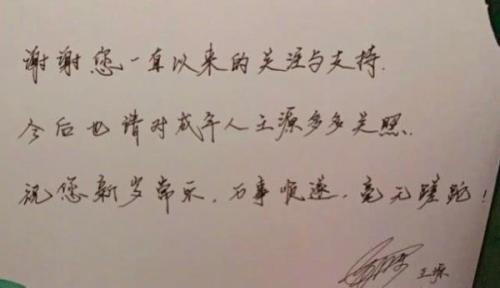 谢谢您一直以来的关注与支持.
今后也请对成年人王源多多关照.
祝您新岁常乐，万事顺遂，毫无蹉跎！
王源